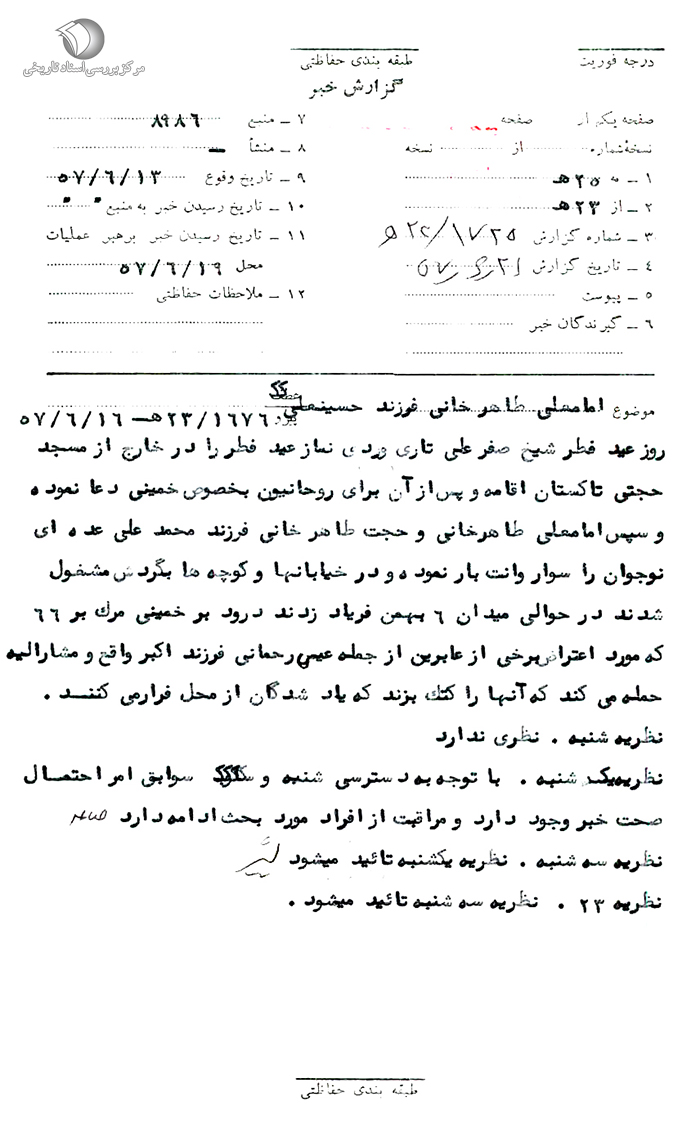 مرکز بررسی اسناد تاریخی
درجه فوریت
طبقه بندی حفاظتی
گزارش خبر
صفحه یکم از صفحه
نسخهٔ شماره از نسخه
۱ ـ به ۲۵ هـ
۲ ـ از ۲۳ هـ
۳ ـ شماره گزارش
۴ ـ تاریخ گزارش
۵ ـ پیوست
۶ ـ گیرندگان خبر
۷ ـ منبع ۸۹۸۶
۸ ـ منشأ ـ
۹ ـ تاریخ وقوع ۵۷/۶/۱۳
۱۰ ـ تاریخ رسیدن خبر به منبع " "
۱۱ ـ تاریخ رسیدن خبر برهبر عملیات
محل ۵۷/۶/۱۹
۱۲ ـ ملاحظات حفاظتی
موضوع امامعلی طاهرخانی فرزند حسینعلی
۲۳/۱۶۷۶ هـ ـ ۵۷/۶/۱۶
روز عید فطر شیخ صفر علی تاری وردی نماز عید فطر را در خارج از مسجد
حجتی تاکستان اقامه و پس از آن برای روحانیون بخصوص خمینی دعا نموده
و سپس امامعلی طاهرخانی و حجت طاهر خانی فرزند محمد علی عده ای
نوجوان را سوار وانت بار نموده و در خیابانها و کوچه ها بگردش مشغول
شدند در حوالی میدان ۶ بهمن فریاد زدند درود بر خمینی مرگ بر ۶۶
که مورد اعتراض برخی از عابرین از جمله عیسی رحمانی فرزند اکبر واقع و مشارالیه
حمله می کند که آنها را کتک بزند که یاد شدگان از محل فرار می کننـد .
نظریه شنبه . نظری ندارد
نظریه یکشنبه . با توجه به دسترسی شنبه و سوابق امر احتمال
صحت خبر وجود دارد و مراقبت از افراد مورد بحث ادامه دارد
نظریه سه شنبه . نظریه یکشنبه تائید میشود
نظریه ۲۳ . نظریه سه شنبه تائید میشود .
طبقه بندی حفاظتی